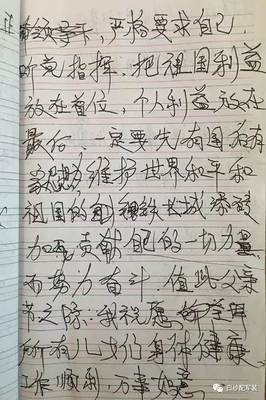 领导下，严格要求自己，
听党指挥，把祖国利益
放在首位，个人利益放在
最后，一定要先有国后有
家，维护世界和平和
祖国的钢铁长城添砖
加瓦，贡献自己的一切力量
而努力奋斗，值此父亲
节之际，我祝愿
所有儿女们身体健康
工作顺利，万事如意
白纱配军装